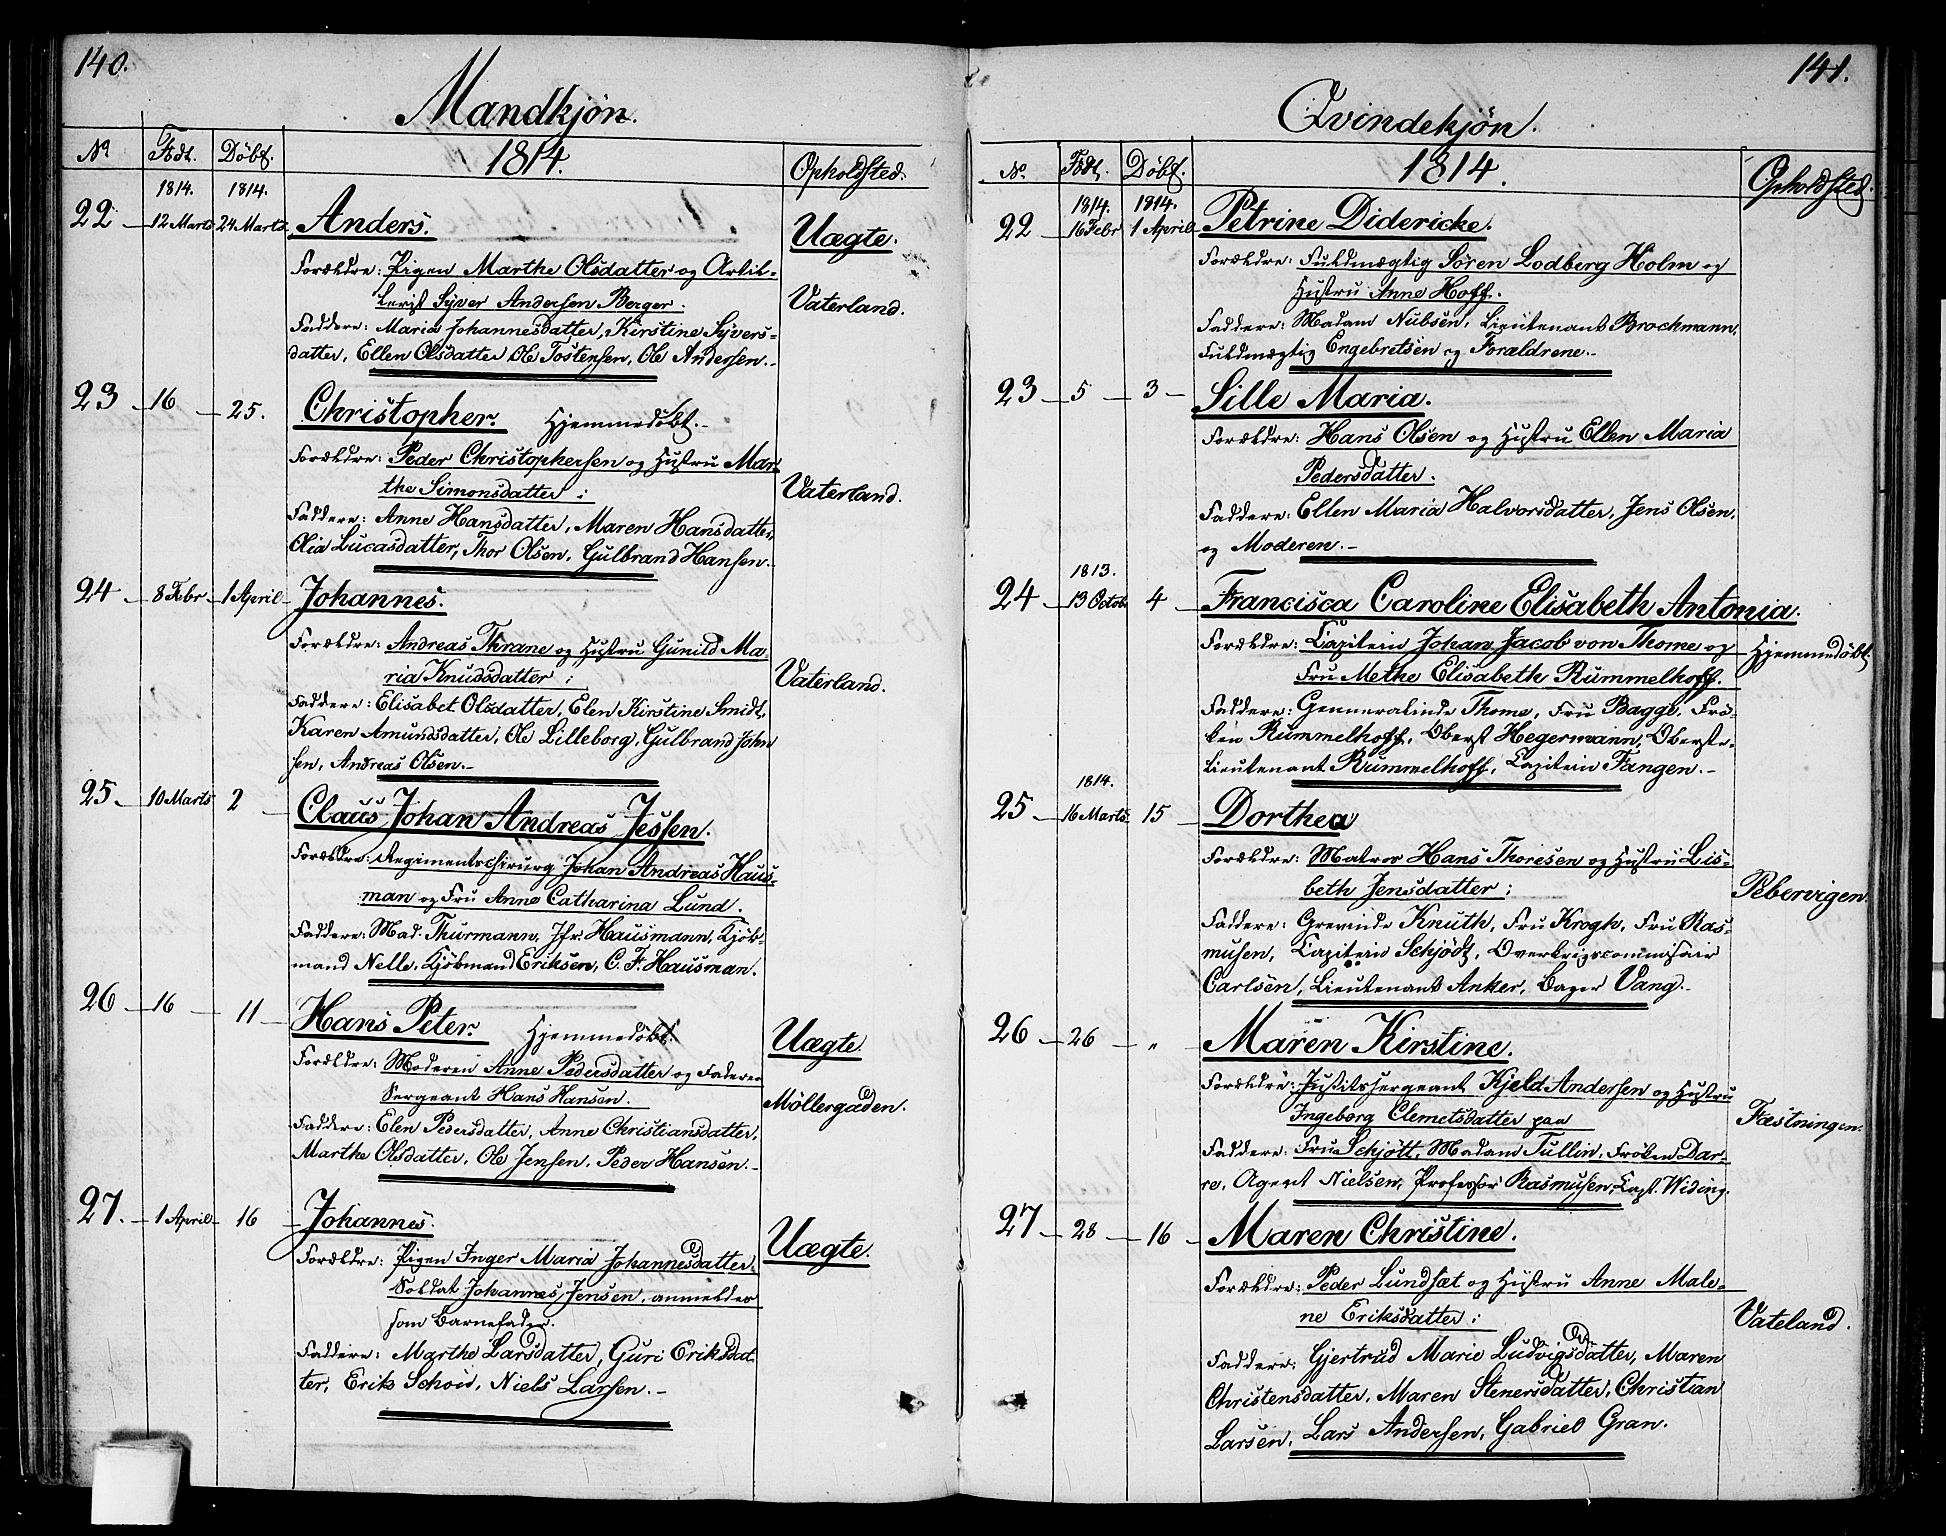 140.
Mandkjøn.
No Født. Døbt. 1814. Opholdsted.
1814. 1814.
22 12 Marts 24 Marts Anders. Uægte.
Forældre: Pigen Marthe Olsdatter og Artil-
lerist Syver Andersen Berger. Vaterland.
Faddere: Maria Johannesdatter, Kirstine Syvers-
datter, Ellen Olsdatter Ole Tostensen, Ole Andersen.
23 16 25. Christopher. Hjemmedøbt.
Forældre: Peder Christophersen og Hustru Mar-
the Simonsdatter: Vaterland.
Faddere: Anne Hansdatter, Maren Hansdatter,
Olia Lucasdatter, Thor Olsen, Gulbrand Hansen.
24 8 Febr 1 April Johannes.
Forældre: Andreas Thrane og Hustru Gunild Ma-
ria Knudsdatter: Vaterland.
Faddere: Elisabet Olsdatter, Elen Kirstine Smidt,
Karen Amundsdatter, Ole Lilleborg, Gulbrand John
sen, Andreas Olsen.
25 10 Marts 2 Claus Johan Andreas Jessen.
Forældre: Regimentschirurg Johan Andreas Haus-
man og Fru Anne Catharina Lund.
Faddere: Mad. Thurmann, Jfr. Hausmann, Kjøb-
mand Nelle, Kjøbmand Eriksen, C. F. Hausman.
26 16 11 Hans Peter. Hjemmedøbt. Uægte.
Forældre: Moderen Anne Pedersdatter og Faderen
Sergeant Hans Hansen. Møllergaden.
Faddere: Elen Pedersdatter, Anne Christiansdatter,
Marthe Olsdatter, Ole Jensen, Peder Hansen.
27. 1 April 16 Johannes. Uægte.
Forældre: Pigen Inger Maria Johannesdatter,
Soldat Johannes Jensen, anmeldes
som Barnefader.
Faddere: Marthe Larsdatter, Guri Eriksdat
ter, Erik Schoid, Niels Larsen.
141.
Qvindekjøn.
No. Født. Døbt. 1814. Opholdsted.
1814. 1814.
22 16 Febr 1 April Petrine Didericke.
Forældre: Fuldmægtig Søren Lodberg Holm og
Hustru Anne Hoff.
Faddere: Madam Nubsen, Lieutenant Brochmann,
Fuldmægtig Engebretsen og Forældrene.
23 5 3 Sille Maria.
Forældre: Hans Olsen og Hustru Ellen Maria
Pedersdatter.
Faddere: Ellen Maria Halvorsdatter, Jens Olsen,
og Moderen.
1813.
24 13 Octob 4 Francisca Caroline Elisabeth Antonia.
Forældre: Capitein Johan Jacob von Thome og Hjemmedøbt.
Fru Methe Elisabeth Rummelhoff.
Faddere: Genneralinde Thome, Fru Bagge, Frø-
ken Rummelhoff, Oberst Hegermann, Oberst-
Lieutenant Rummelhoff, Capitein Fangen.
1814.
25 16 Marts 15 Dorthea
Forældre: Matros Hans Thoresen og Hustru Lis-
beth Jensdatter: Pebervigen.
Faddere: Grevinde Knuth, Fru Krogh, Fru Ras-
musen, Capitein Schjödt, Overkrigscommisair
Carlsen, Lieutenant Anker, Bager Vang.
26 26 " Maren Kirstine.
Forældre: Justitssergeant Kjeld Andersen og Hustru
Ingeborg Clemetsdatter paa Fæstningen.
Faddere: Fru Schjött, Madam Tullin, Frøken Dar-
re, Agent Nielsen, Professor Rasmusen, Capt. Widing.
27 28 16 Maren Christine.
Forældre: Peder Lundsæt og Hustru Anne Male-
ne Eriksdatter: Vateland.
Faddere: Gjertrud Marie Ludvigsdatter, Maren
Christensdatter, Maren Stenersdatter, Christian
Larsen, Lars Andersen, Gabriel Gran.